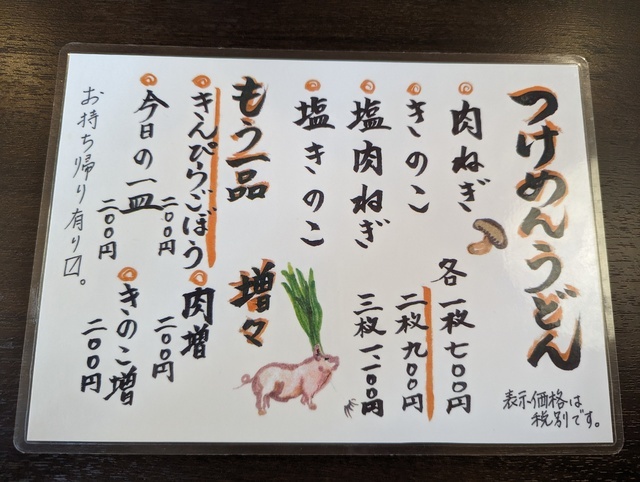 つけめんうどん
表示価格は
税別です。
肉ねぎ
きのこ
塩肉ねぎ
塩きのこ
各一枚七〇〇円
二枚九〇〇円
三枚一、一〇〇円
もう一品
きんぴらごぼう
二〇〇円
今日の一皿
二〇〇円
増々
肉増
二〇〇円
きのこ増
二〇〇円
お持ち帰り有り〼。